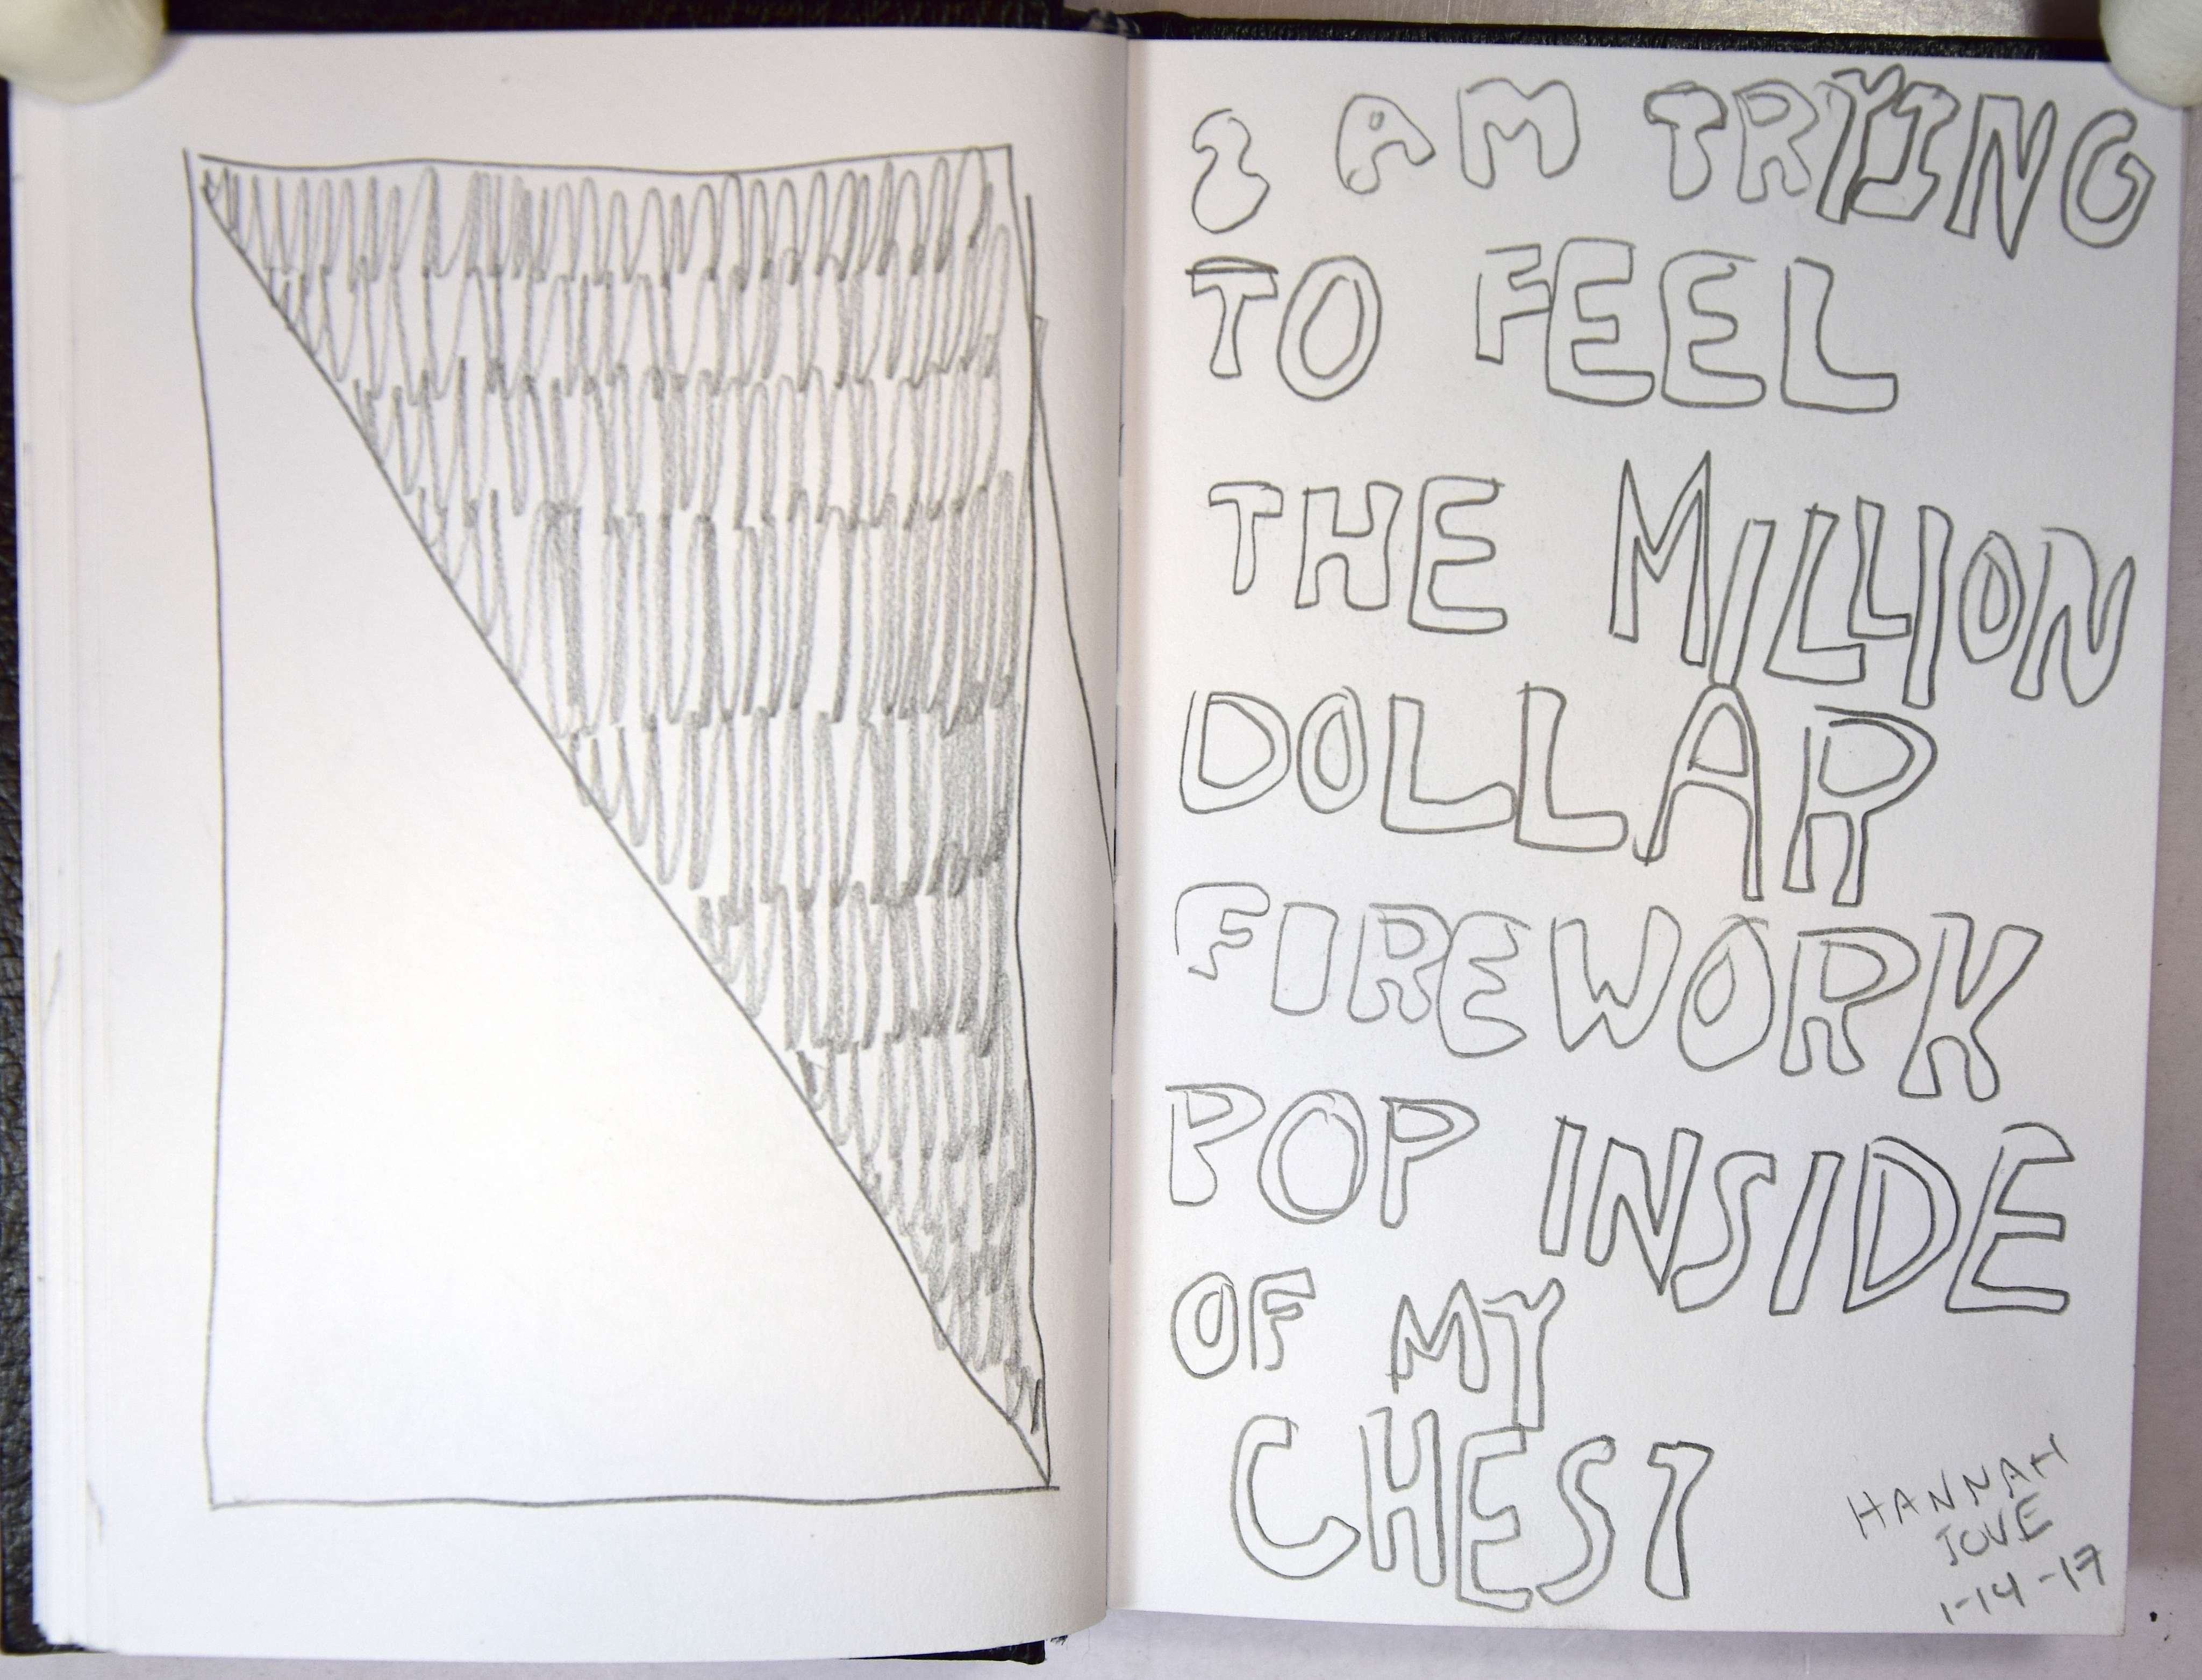 I AM TRYING
TO FEEL
THE MILLION
DOLLAR
FIREWORK
POP INSIDE
OF MY
CHEST
HANNAH
JOVE
1-14-17